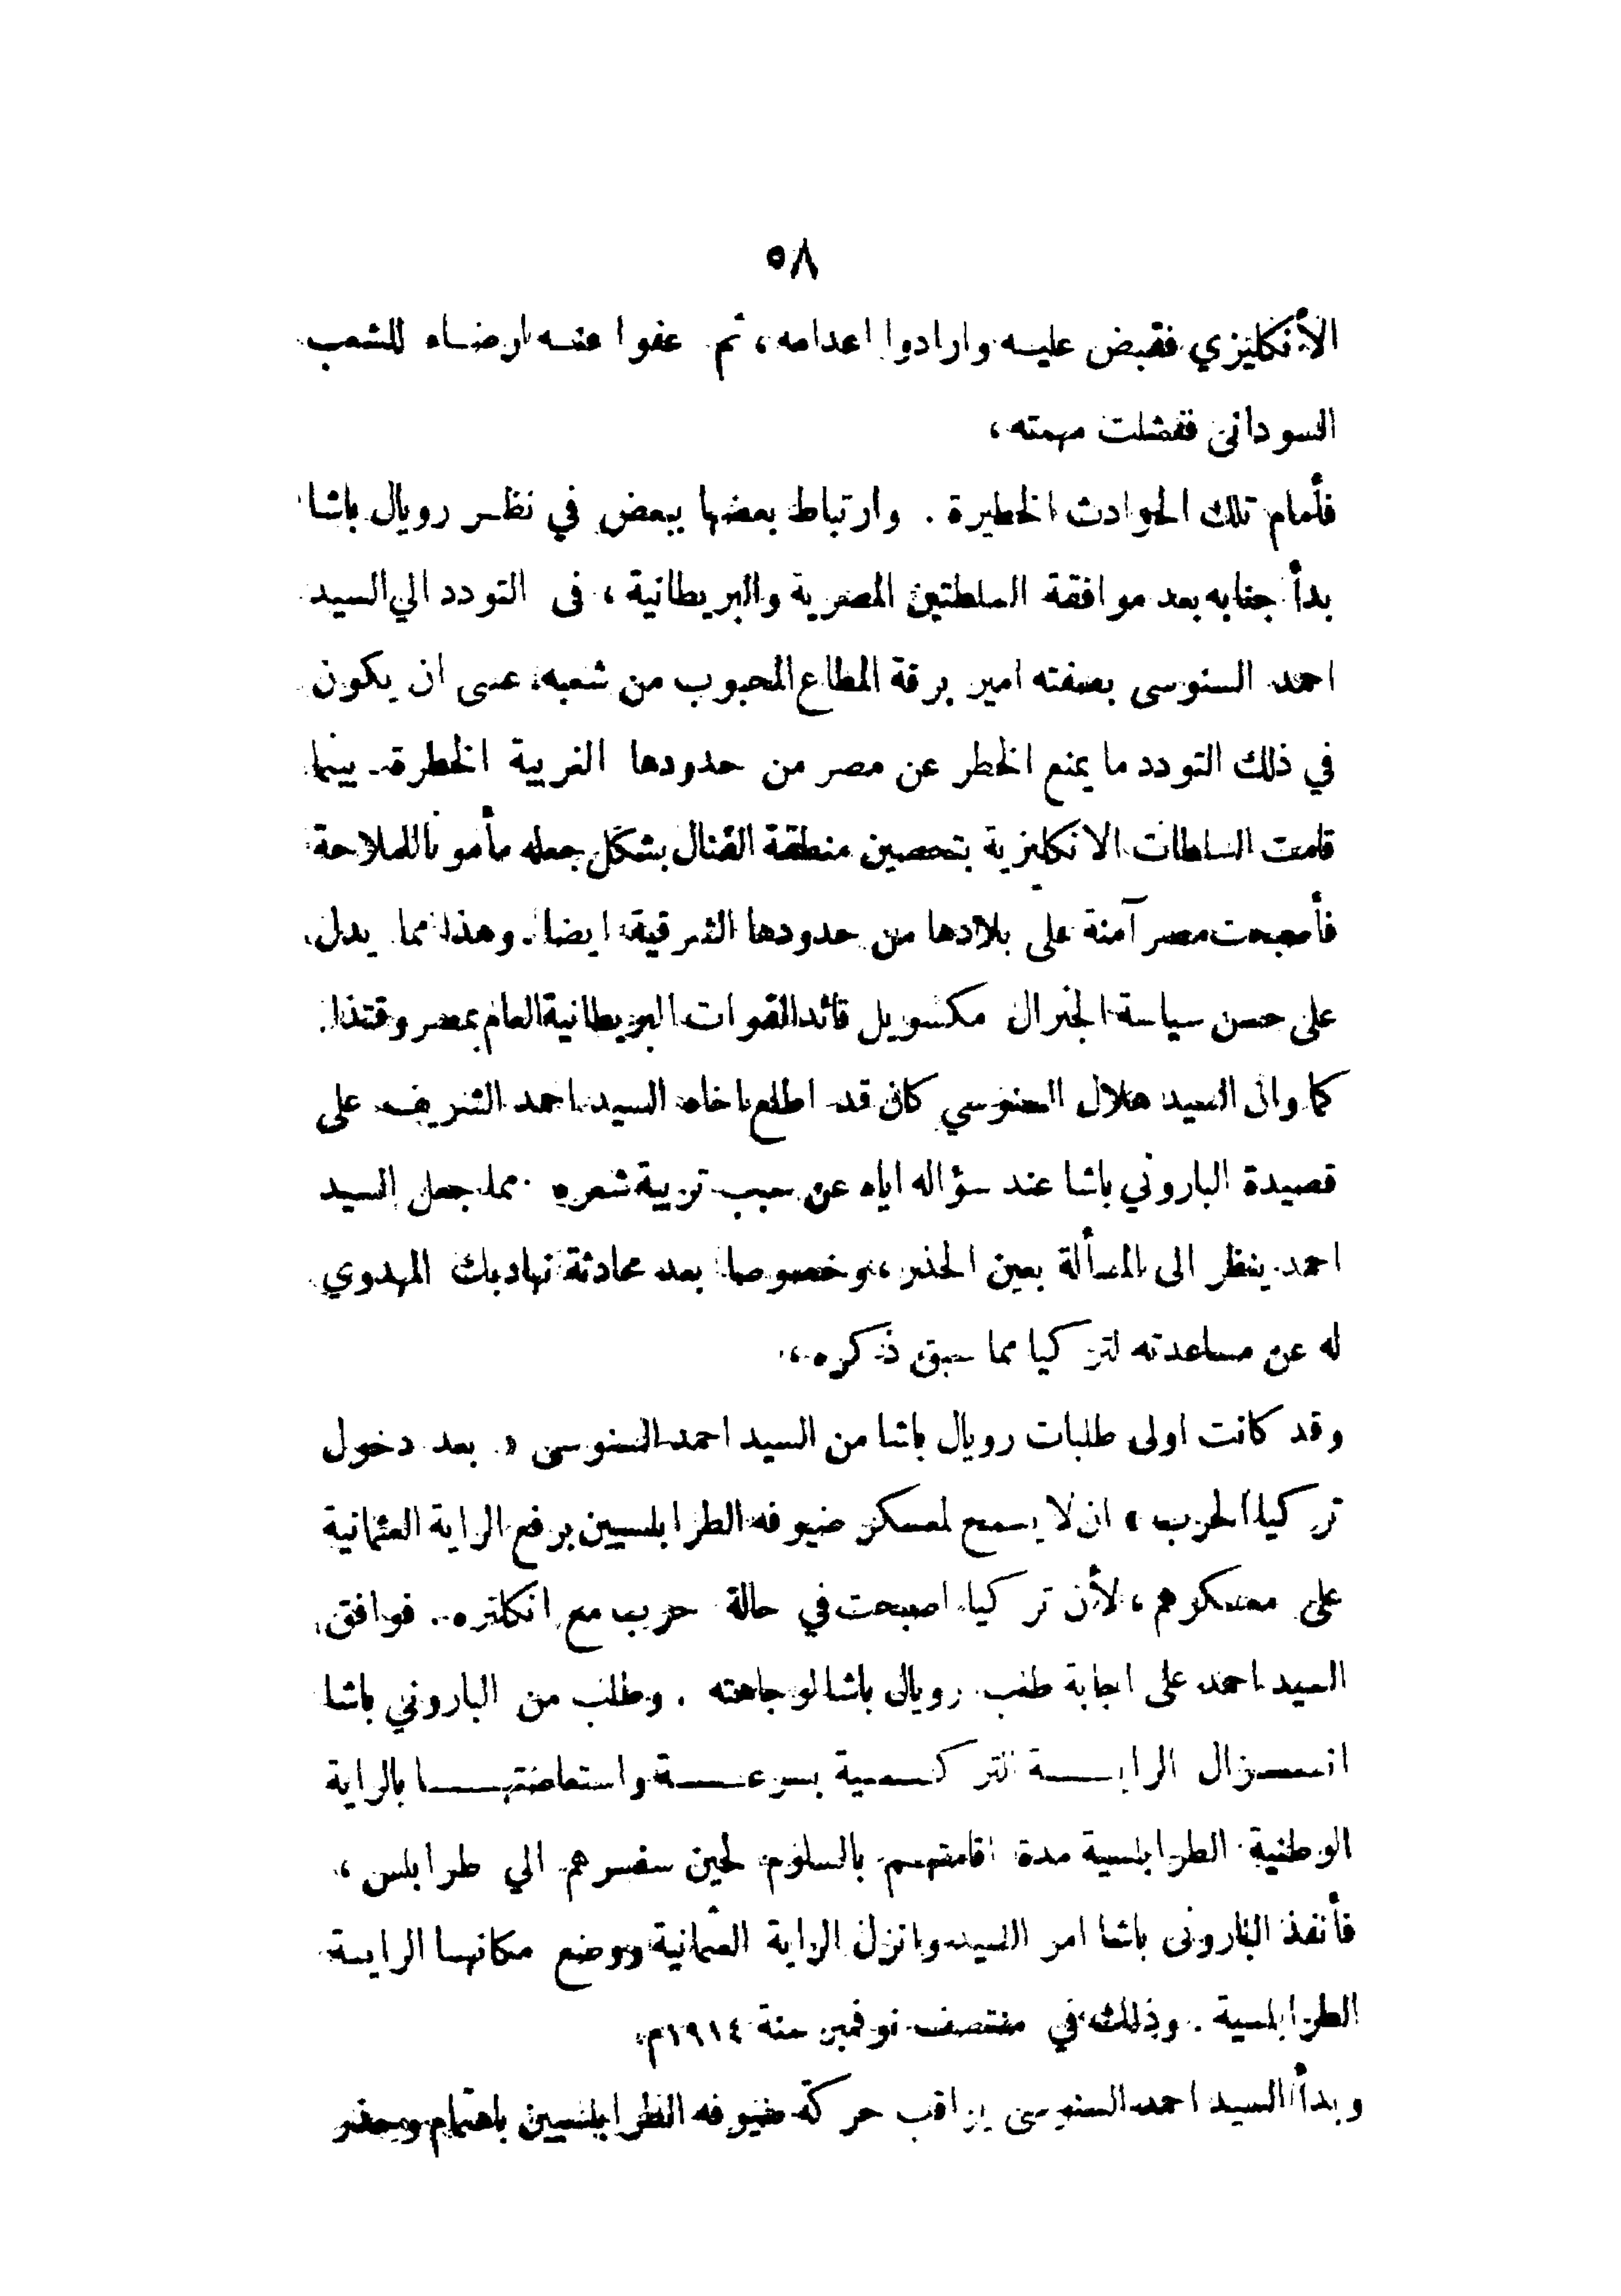 ٥٨
الأنكليزي فقبض عليه وارادوا اعدامه، ثم عفوا عنه ارضاء للشعب
السوداني ففشلت مهمته،
فأمام تلك الحوادث الخطيرة . وارتباط بعضها ببعض في نظر رويال باشا
بدأ جنابه بعد موافقة السلطتين المصرية والبريطانية، فى التودد الي السيد
احمد السنوسى بصفته امير برقة المطاع المحبوب من شعبه، عسى ان يكون
في ذلك التودد ما يمنع الخطر عن مصر من حدودها الغربية الخطرة. بينما
قامت السلطات الانكليزية بتحصين منطقة القنال بشكل جعله مأمونا للملاحة
فأصبحت مصر آمنة على بلادها من حدودها الشرقية ايضا. وهذا مما يدل
على حسن سياسة الجنرال مكسويل قائد القوات البريطانية العام بمصر وقتذا.
كما وان السيد هلال السنوسي كان قد اطلع اخاه السيد احمد الشريف على
قصيدة الباروني باشا عند سؤاله اياه عن سبب تربية شعره . مما جعل السيد
احمد ينظر الى المسألة بعين الحذر، وخصوصا بعد محادثة نهاد بك المهدوي
له عن مساعدته لتركيا مما سبق ذكره،
وقد كانت اولى طلبات رويال باشا من السيد احمد السنوسى « بعد دخول
تركيا الحرب » ان لا يسمح لمعسكر ضيوفه الطرابلسيين برفع الراية العثمانية
على معسكرهم، لأن تركيا اصبحت في حالة حرب مع انكلتره. فوافق
السيد احمد على اجابة طلب رويال باشا لوجاهته . وطلب من الباروني باشا
انـــزال الرايـــة التركـــية بسرعـــة واستعاضتهـــا بالراية
الوطنية الطرابلسية مدة اقامتهم بالسلوم لحين سفرهم الي طرابلس،
فأنفذ البارونى باشا امر السيد وانزل الراية العثمانية ووضع مكانها الراية
الطرابلسية . وذلك في منتصف نوفمبر سنة ١٩١٤م.
وبدأ السيد احمد السنوسى يراقب حركة ضيوفه الطرابلسيين باهتمام وحذر